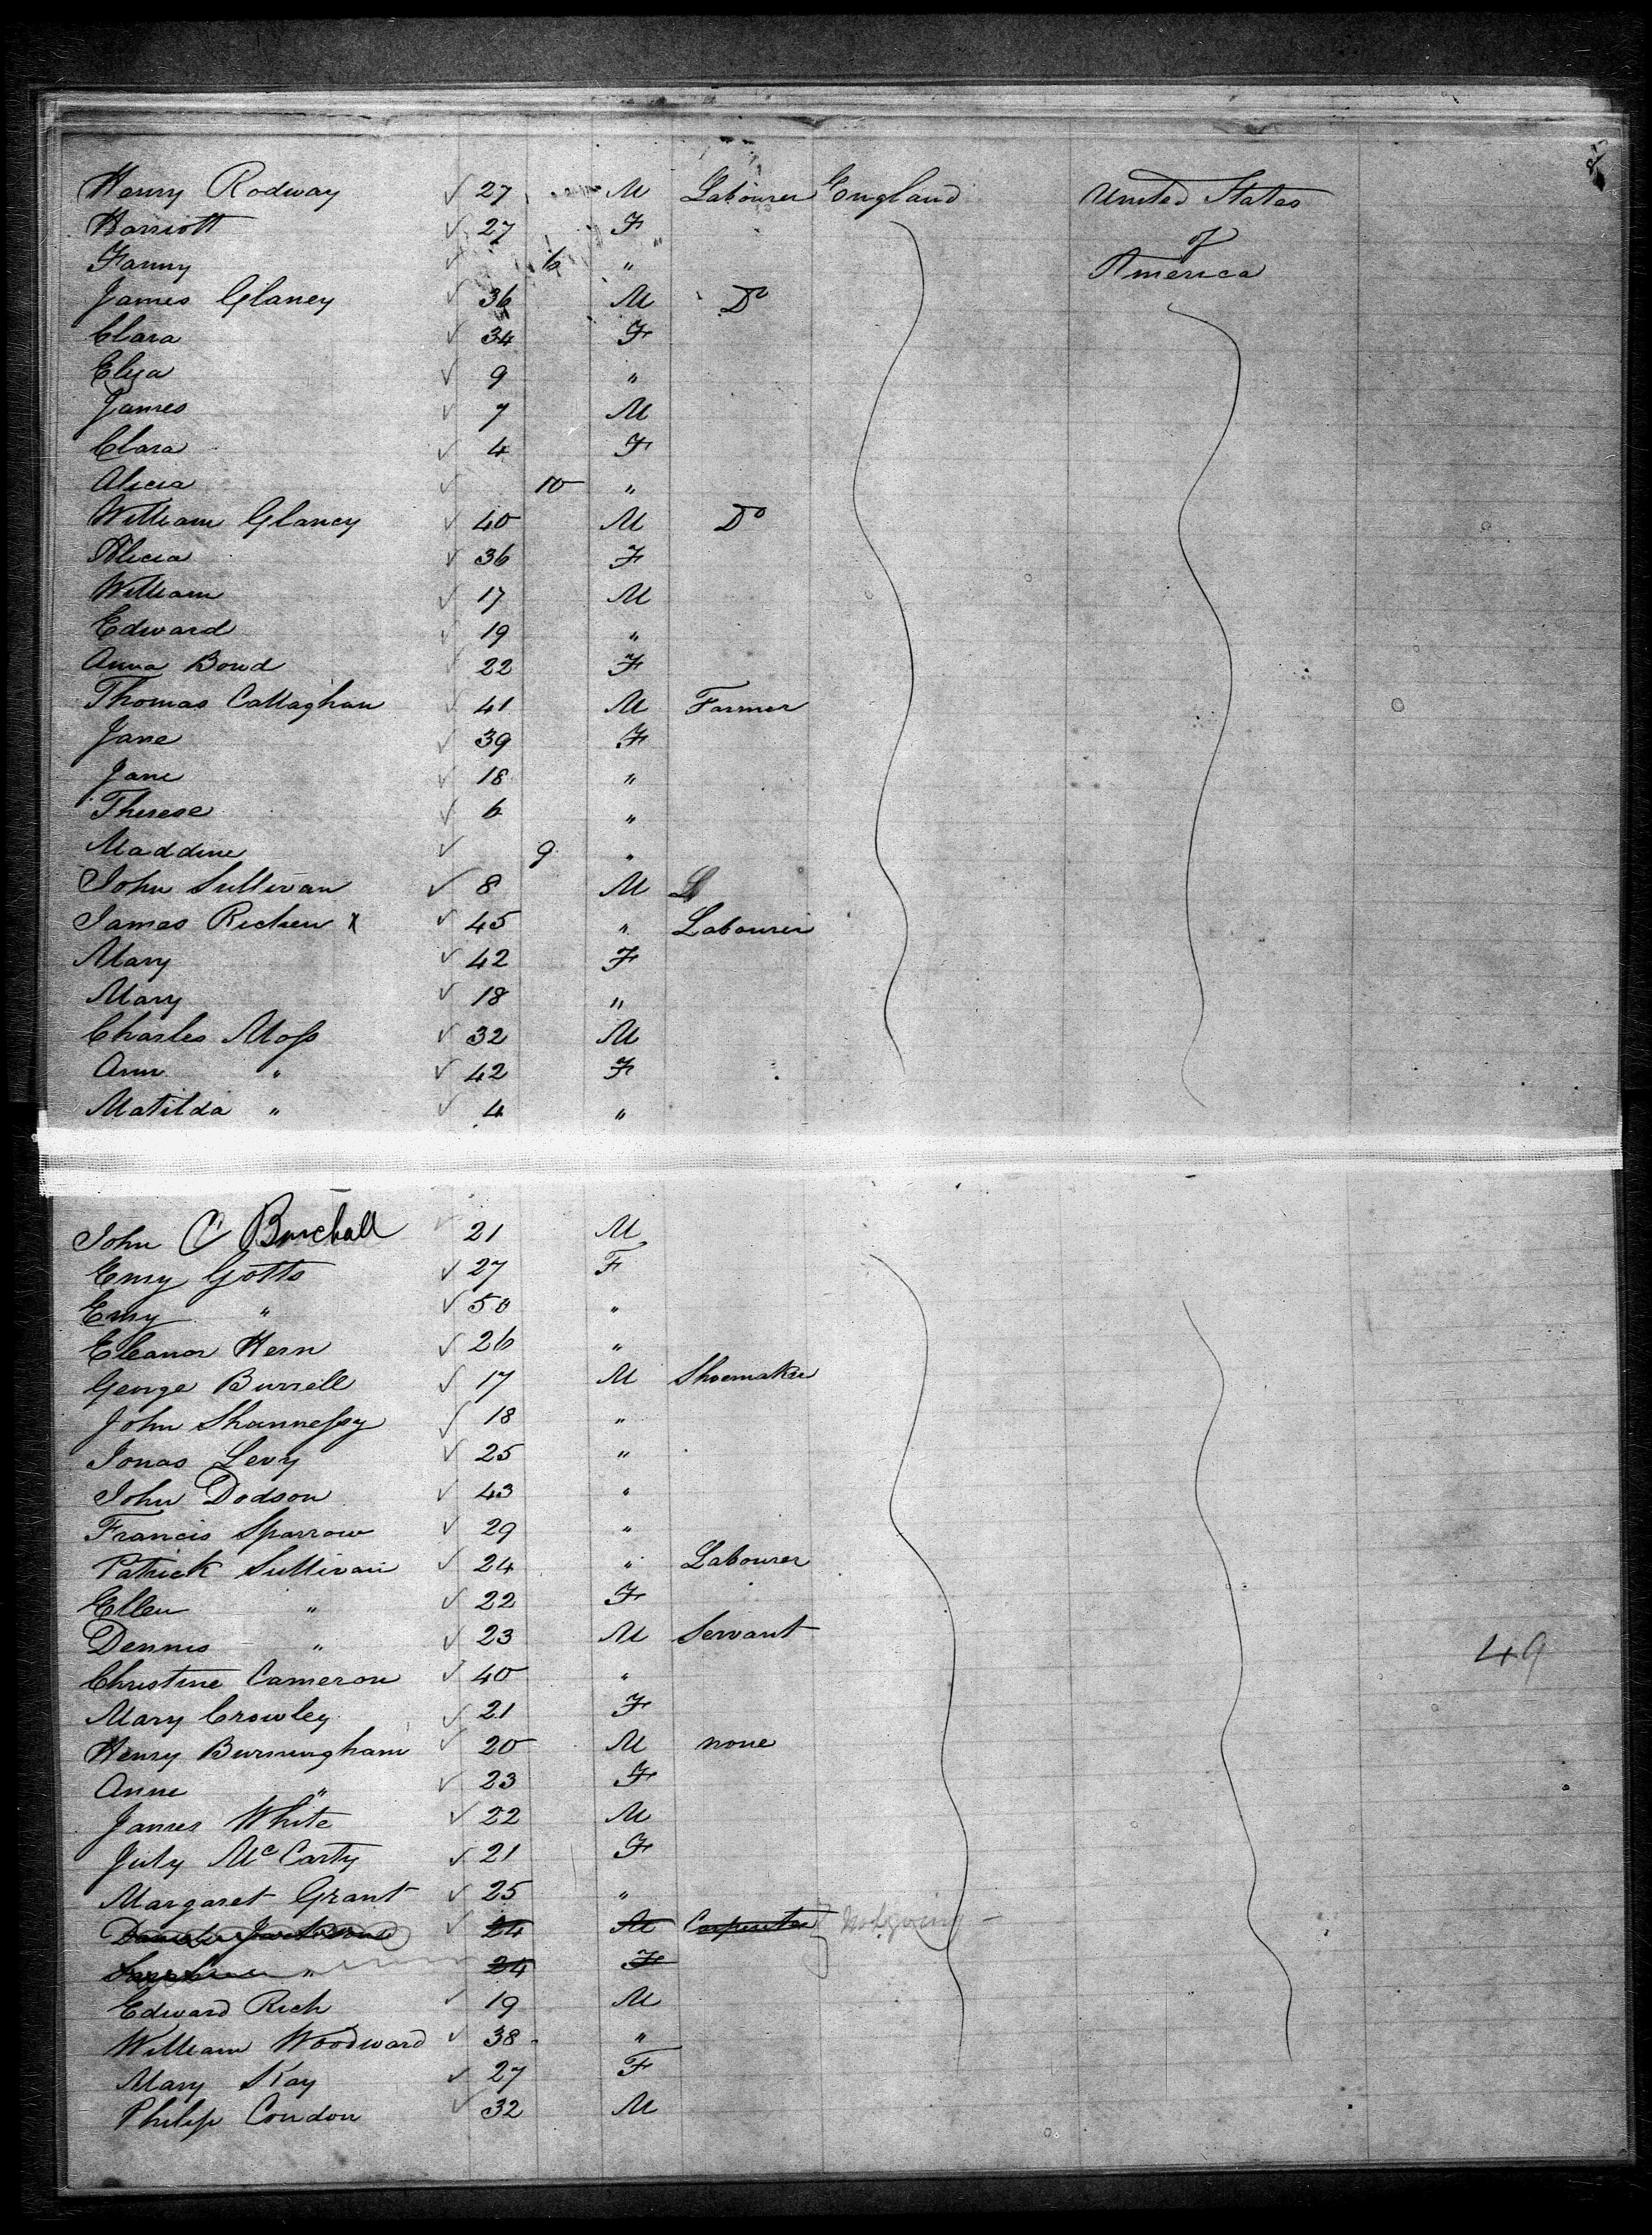 Henry Rodway 27 M Labourer England United States
Harriott 27 F of
Fanny 6 " America
James Glaney 36 M Do
Clara 34 F
Eliza 9 "
James 7 M
Clara 4 F
Alicia 10 "
William Glancy 40 M Do
Alicia 36 F
William 17 M
Edward 19 "
Anna Bond 22 F
Thomas Callaghan 41 M Farmer
Jane 39 F
Jane 18 "
Therese 6 "
Maddine 9 "
John Sullivan 8 M
James Ricken X 45 " Labourer
Mary 42 F
Mary 18 "
Charles Moss 32 M
Ann " 42 F
Matilda " 4 "
John C Burchall 21 M
Emy Gotts 27 F
Emy " 50 "
Eleanor Hern 26 "
George Burrell 17 M Shoemaker
John Shannessy 18 "
Jonas Levy 25 "
John Dodson 43 "
Francis Sparrow 29 "
Patrick Sullivan 24 " Labourer
Ellen " 22 F
Dennis " 23 M Servant
Christine Cameron 40 " 49
Mary Crowley 21 F
Henry Burningham 20 M none
Anne " 23 F
James White 22 M
July McCarty 21 F
Margaret Grant 25 "
24 M Carpenter Not going
" 24 F
Edward Rich 19 M
William Woodward 38 "
Mary Kay 27 F
Philip Condon 32 M